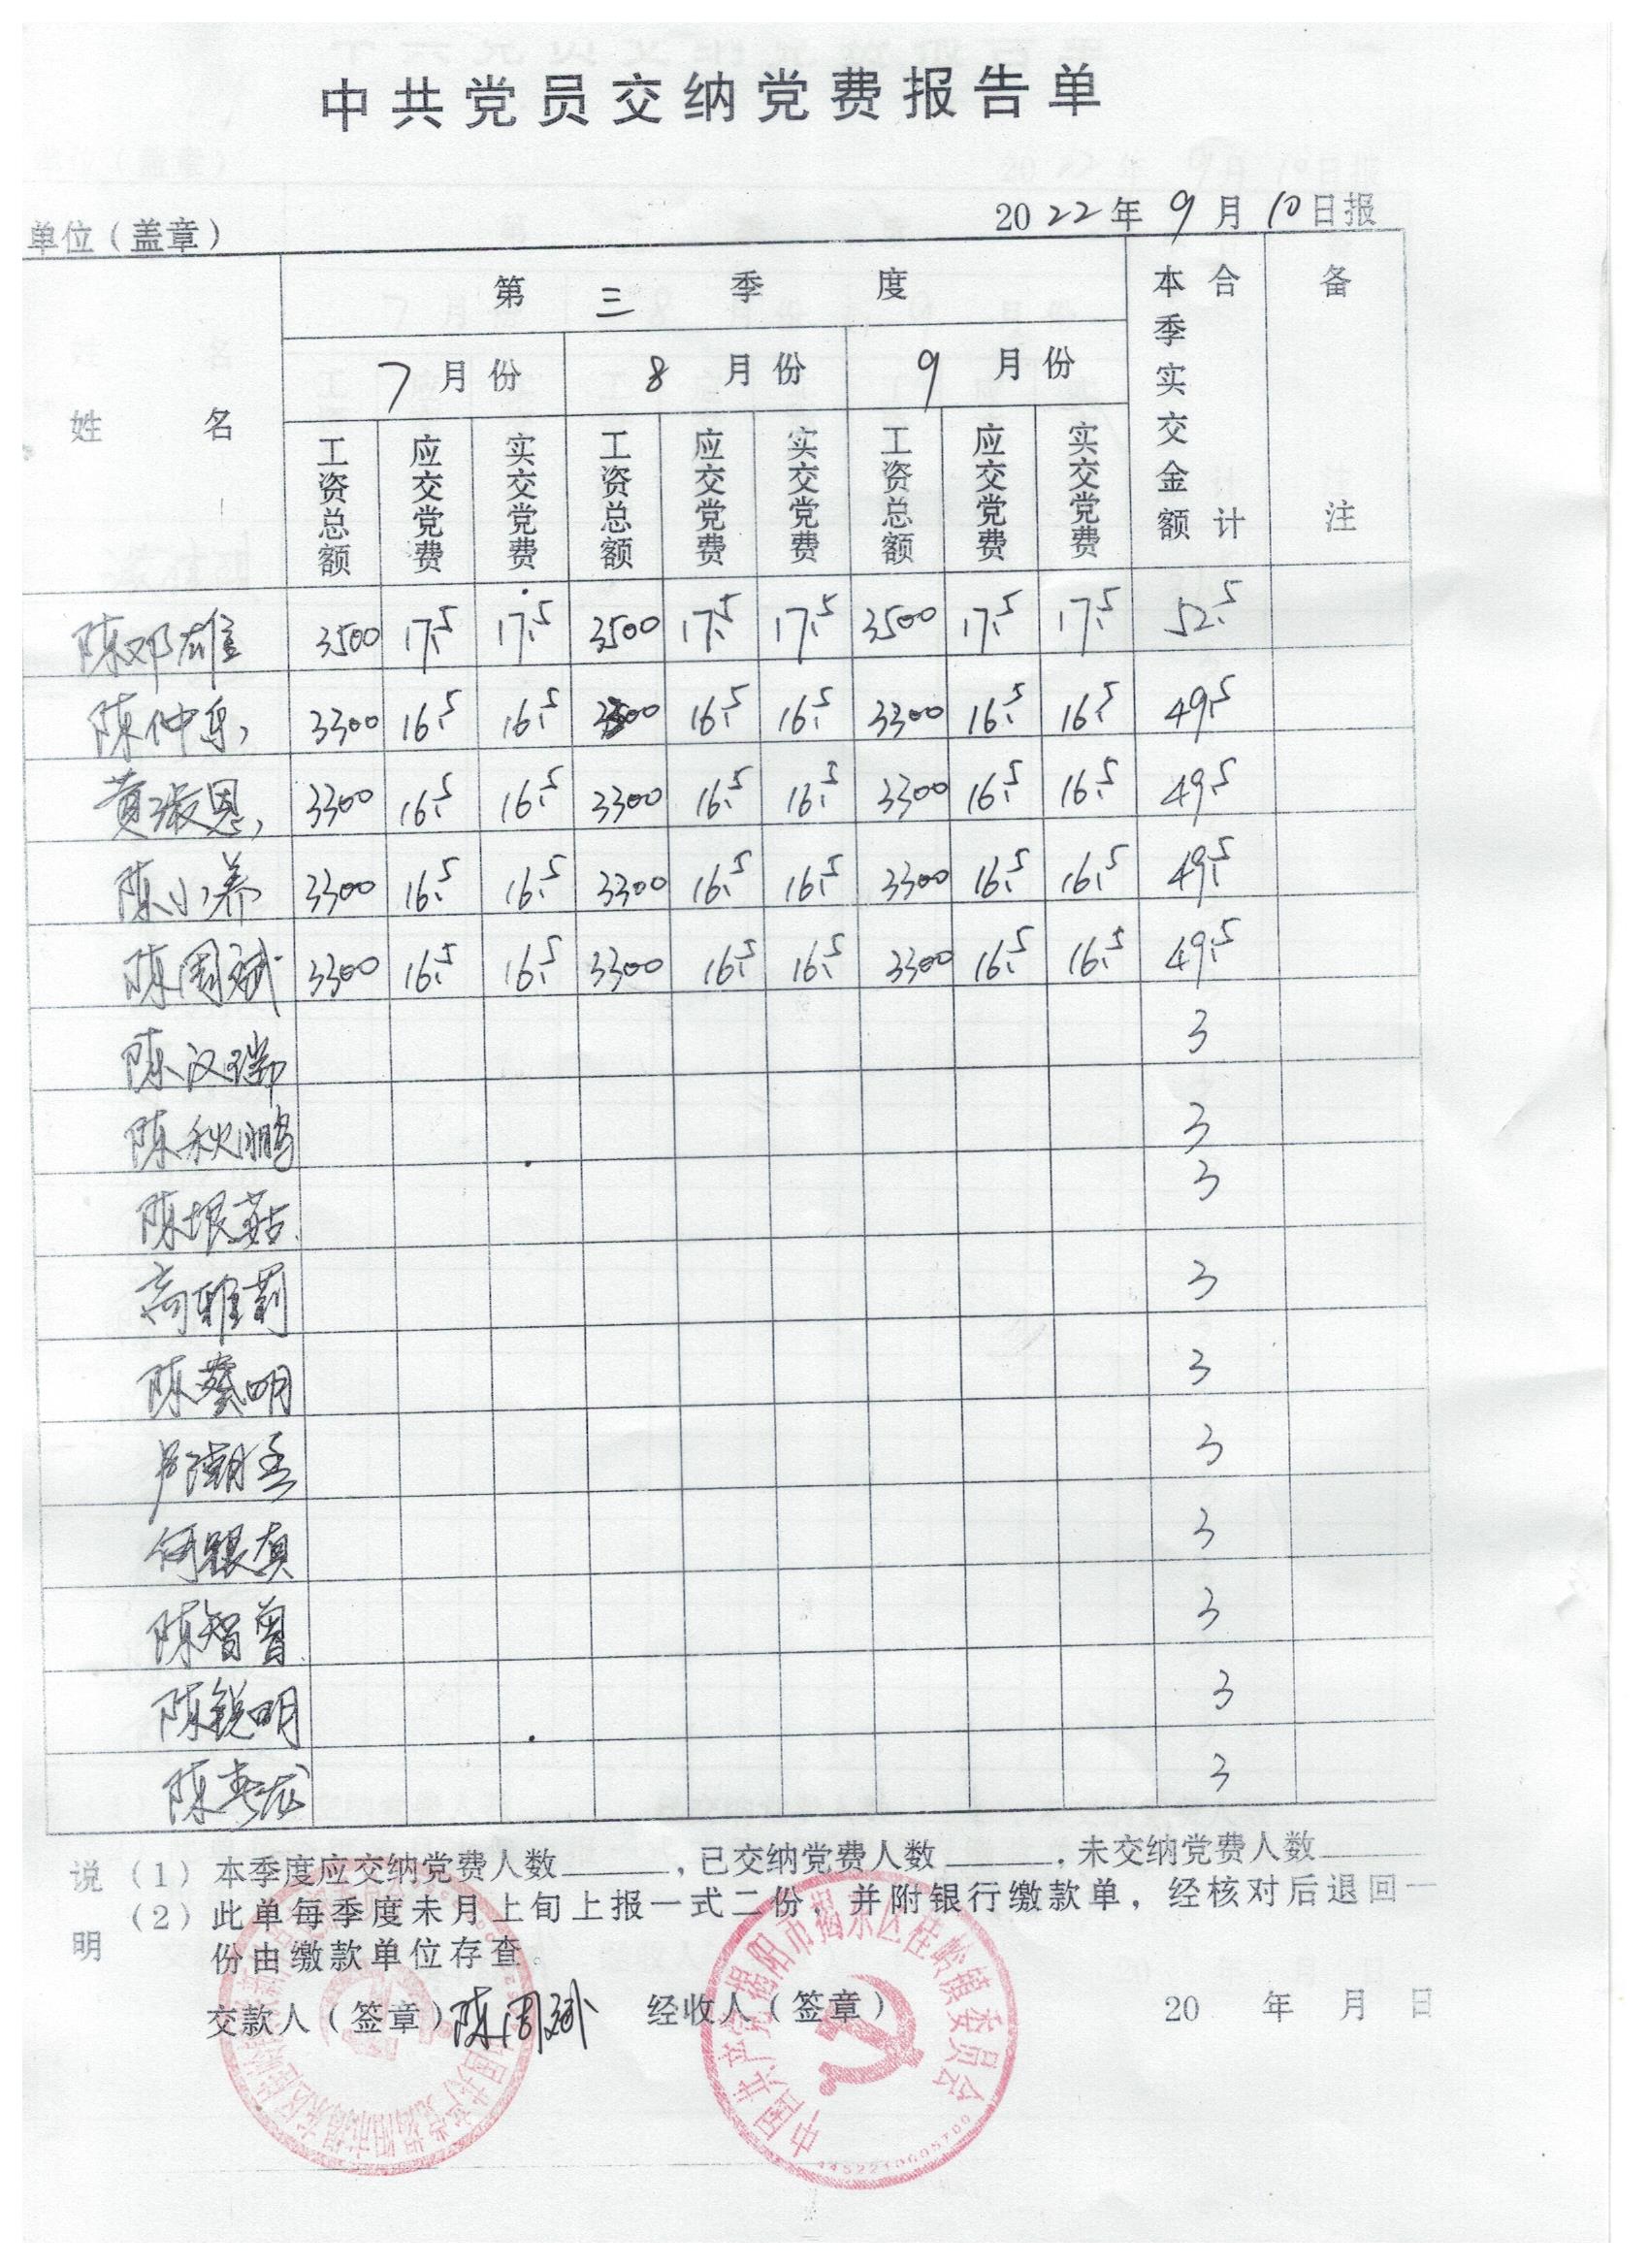 中共党员交纳党费报告单
单位（盖章） 2022年9月10日报
姓名 第三季度 本季实交金额合计 备注
7月份 8月份 9月份
工资总额 应交党费 实交党费 工资总额 应交党费 实交党费 工资总额 应交党费 实交党费
陈邓雄 3500 17.5 17.5 3500 17.5 17.5 3500 17.5 17.5 52.5
陈仲 3300 16.5 16.5 16.5 16.5 3300 16.5 16.5 49.5
黄淑恩 3300 16.5 16.5 3300 16.5 16.5 3300 16.5 16.5 49.5
陈小养 3300 16.5 16.5 3300 16.5 16.5 3300 16.5 16.5 49.5
陈周斌 3300 16.5 16.5 3300 16.5 16.5 3300 16.5 16.5 49.5
陈汉瑞 3
陈秋鹏 3
陈垠菇 3
高雅莉 3
陈葵明 3
3
何银真 3
陈智曾 3
陈锐明 3
陈 3
说明 （1）本季度应交纳党费人数____，已交纳党费人数____，未交纳党费人数____
（2）此单每季度末月上旬上报一式二份，并附银行缴款单，经核对后退回一
份由缴款单位存查。
交款人（签章）陈周斌 经收人（签章） 20 年 月 日
中国共产党揭阳市揭东区桂岭镇委员会